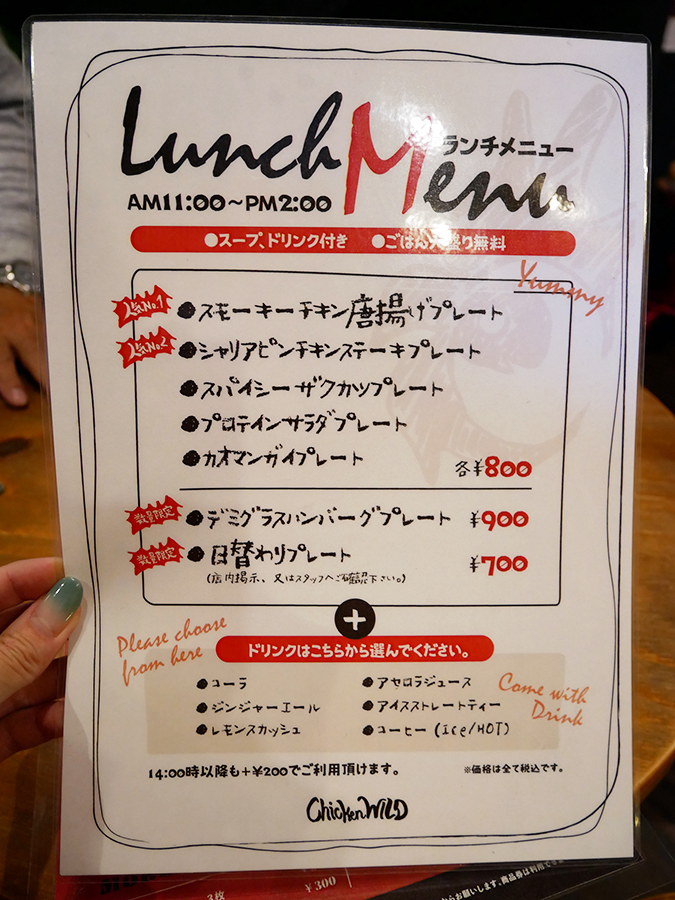 Lunch Menu
ランチメニュー
AM11:00～PM2:00
●スープ、ドリンク付き ●ごはん大盛り無料
Yummy
人気No.1 ●スモーキーチキン唐揚げプレート
人気No.2 ●シャリアピンチキンステーキプレート
●スパイシーザクカツプレート
●プロテインサラダプレート
●カオマンガイプレート 各¥800
数量限定 ●デミグラスハンバーグプレート ¥900
数量限定 ●日替わりプレート ¥700
(店内掲示、又はスタッフへご確認下さい。)
+
Please choose
from here
ドリンクはこちらから選んでください。
●コーラ
●ジンジャーエール
●レモンスカッシュ
●アセロラジュース
●アイスストレートティー
●コーヒー(Ice/HOT)
Come with
Drink
14:00時以降も+¥200でご利用頂けます。
※価格は全て税込です。
Chicken WILD
3枚 ¥300
お願いします。商品券は利用でき